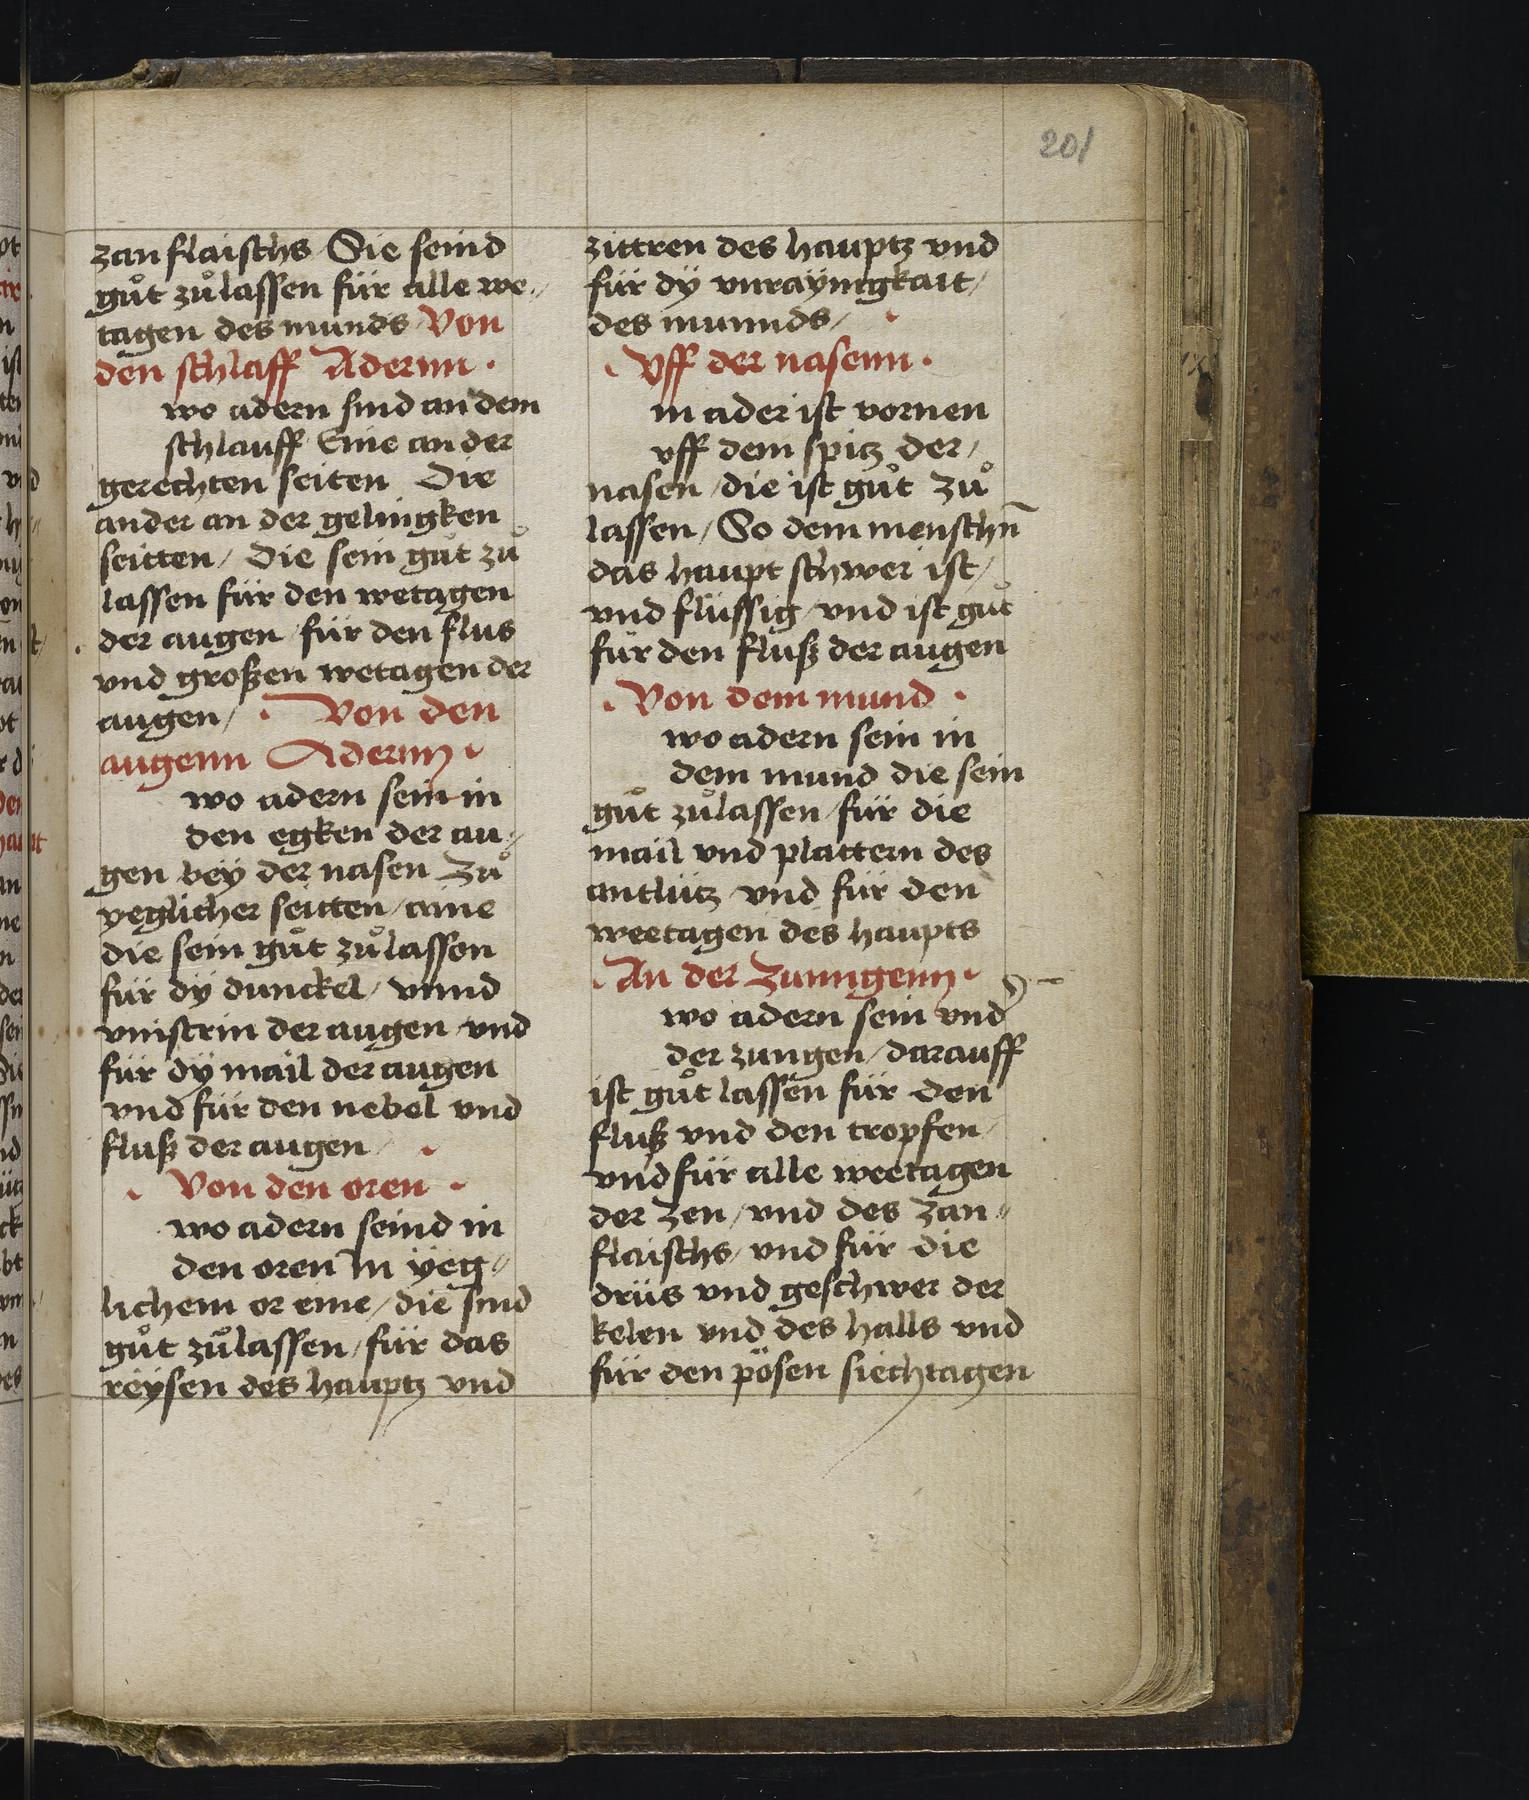 201
zan flaischs Sie seind
gůt zůlassen für alle we⸗
tagen des munds Von
den schlaff Adernn ·
wo adern sind an dem
schlauff Eine an der
gerechten seiten Die
ander an der gelingken
seitten / Die sein gůt zů
lassen für den wetagen
der augen / für den flus
vnd großen wetagen der
augen / · Von den
augenn Adernn ·
wo adern sein in
den egken der au⸗
gen beÿ der nasen Zů
yeglicher seitten / aine
die sein gůt zůlassen
für dÿ dunckel / vnnd
vnistrin der augen / vnd
für dÿ mail der augen
vnd für den nebel vnd
fluß der augen / ·
· Von den oren ·
wo adern seind in
den oren In ÿeg⸗
lichem or eine / die sind
gůt zůlassen / für das
reÿsen des hauptz vnd
zittren des hauptz vnd
für dÿ vnraÿnigkait /
des munnds / ·
· Vff der nasenn ·
in ader ist vornen
vff dem spitz der /
nasen / die ist gůt zů
lassen / So dem menschn̄
das haupt schwer ist /
vnd flüssig / vnd ist gůt
für den fluß der augen
· Von dem mund ·
wo adern sein in
dem mund die sein
gůt zůlassen / für die
mail vnd plattern des
antlütz vnd für den
weetagen des haupts
· An der Zunngenn ·
wo adern sein vnd
der zungen / darauff
ist gůt lassen für den
fluß vnd den tropfen /
vnd für alle weetagen
der Zen / vnd des Zan⸗
flaischs / vnd für die
drüs vnd geschwer der
kelen vnd des halls vnd
für den pösen siechtagen